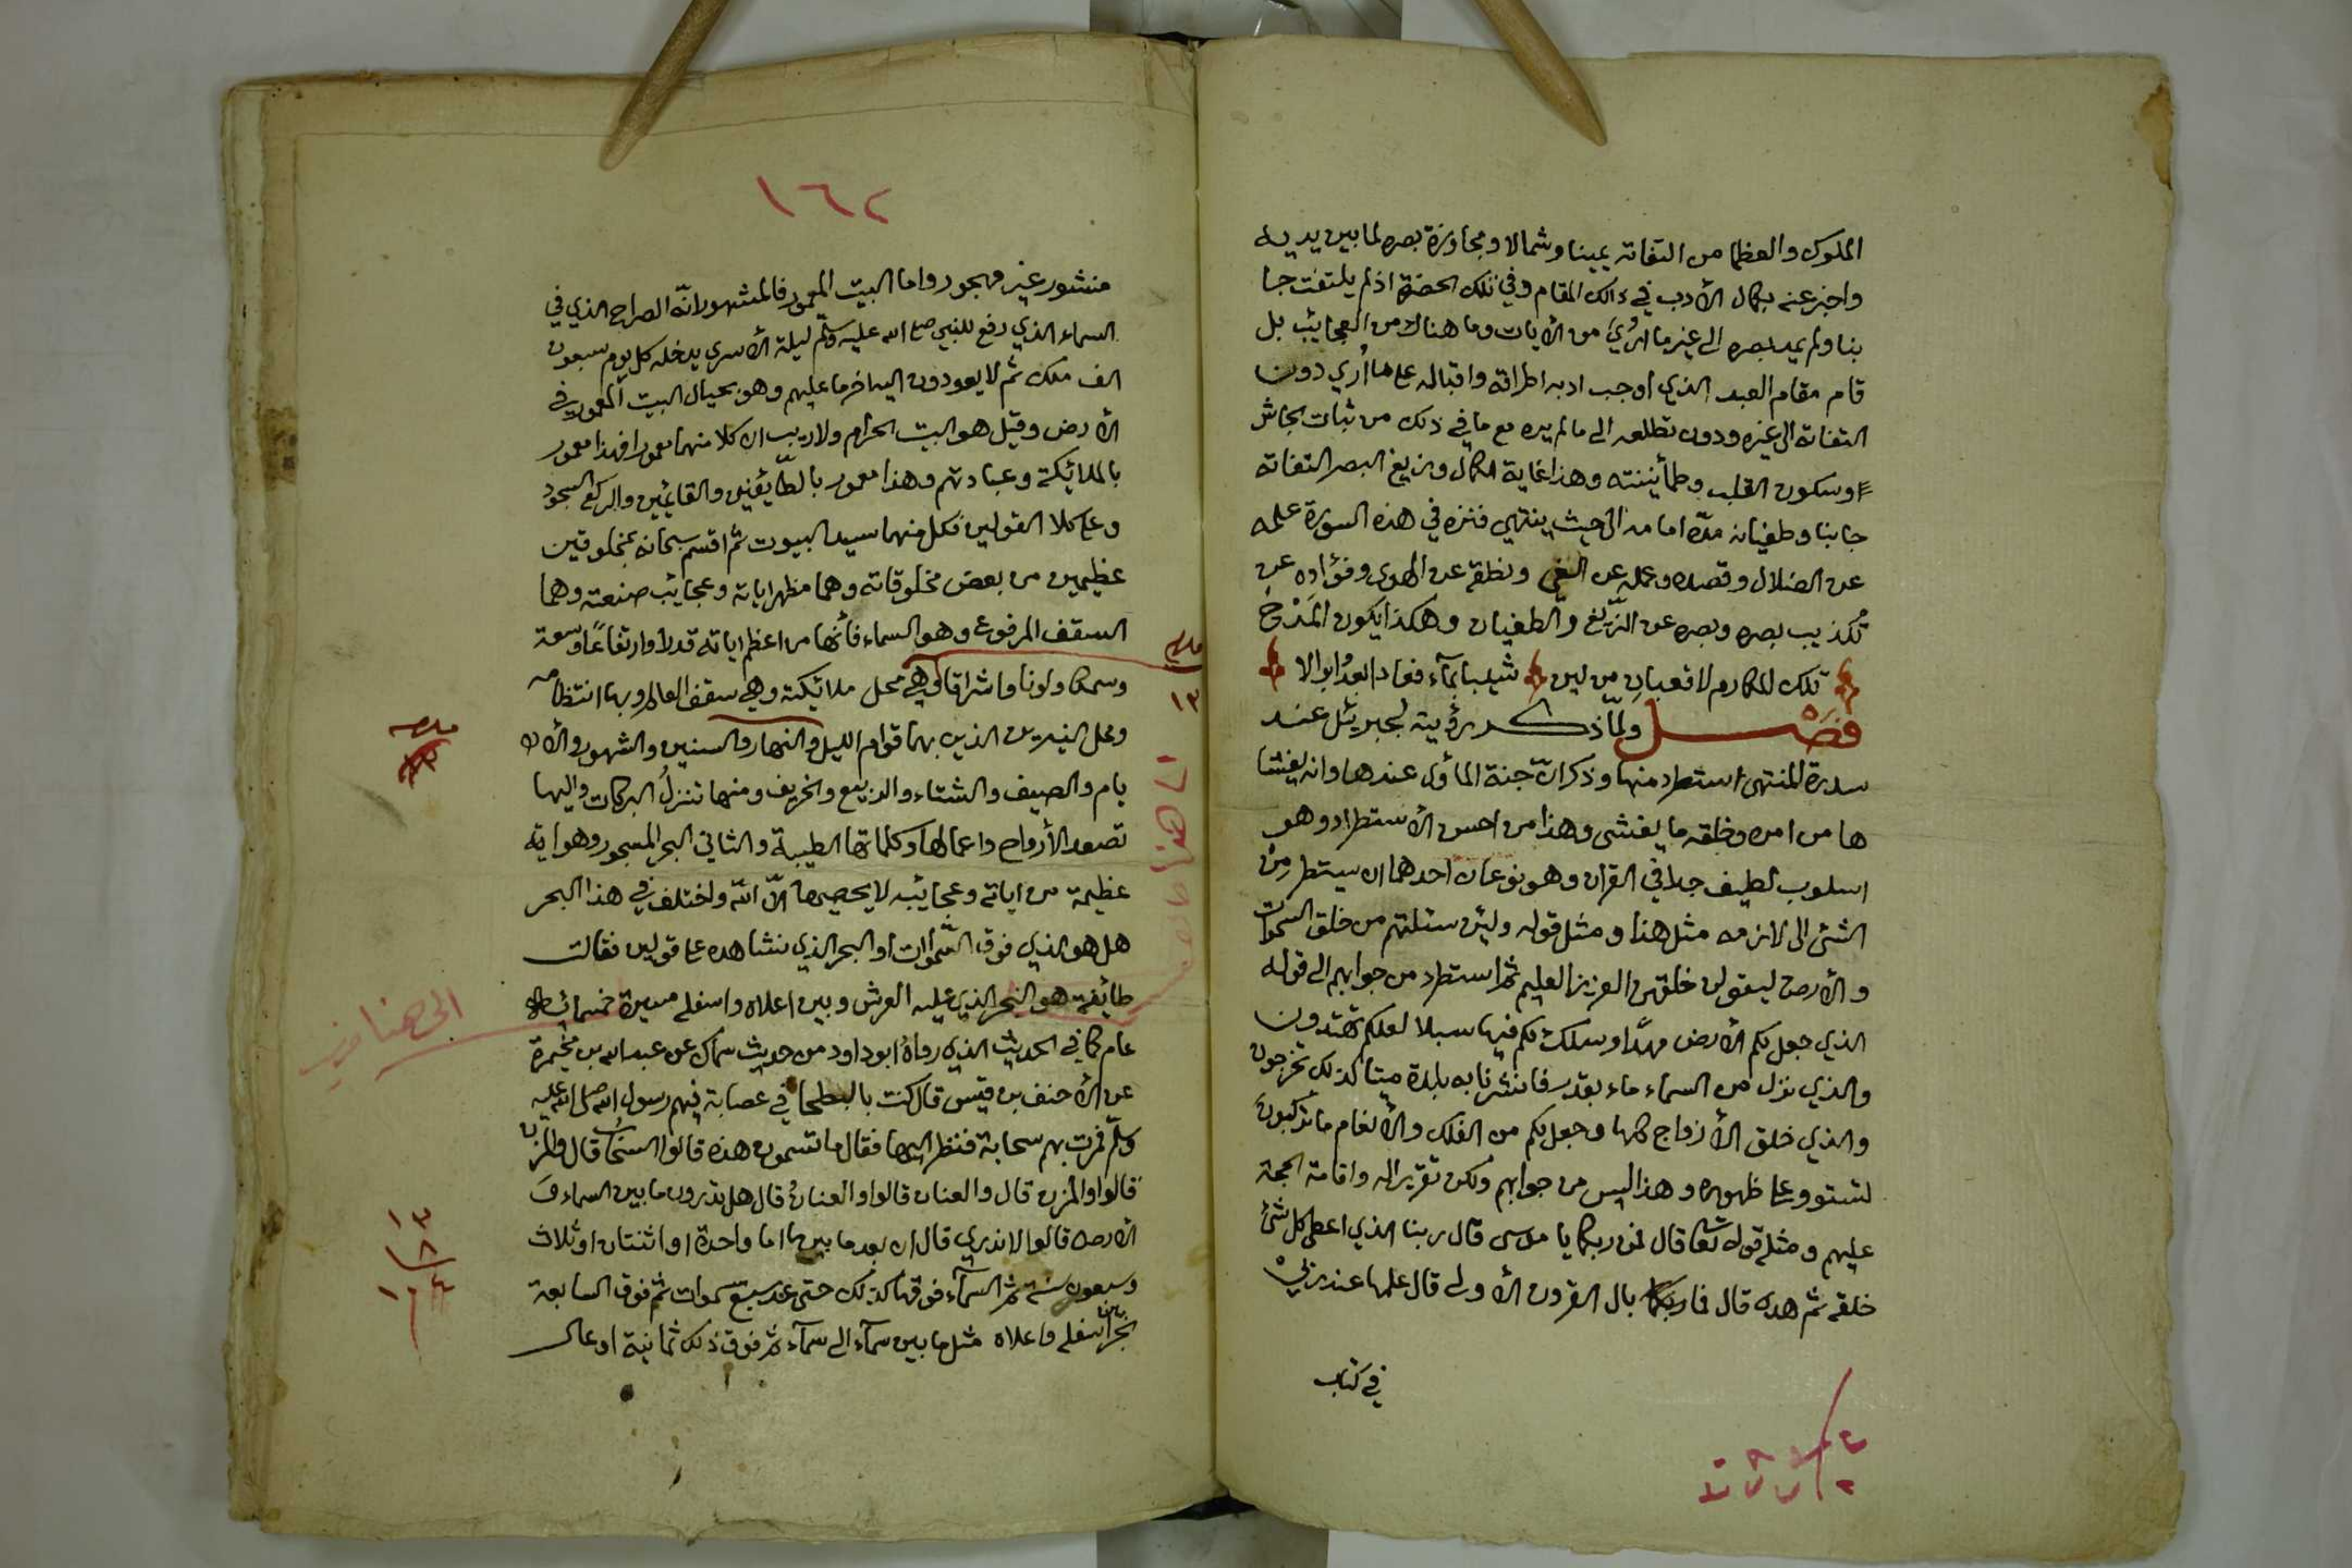 الملوك والعظما من التفاته يمينا وشمالا ومجاوزة بصره لما بين يديه
واخبر عنه بكمال الأدب في ذالك المقام وفي تلك الحضرة اذ لم يلتفت جا
نبا ولم يمد بصره الى غير ما أُرُيَ من الأيات وما هناك من العجائب بل
قام مقام العبد الذي اوجب ادبه اطراقه واقباله على ما أُري دون
التفاته الى غيره ودون تطلعه الى مالم يره مع ما في ذلك من ثبات الجاش
وسكون القلب وطمأنينته وهذا غاية الكمال وزيغ البصر التفاته
جانبا وطغيانه مدّه امامه الى حيث ينتهي فنزه في هذه السورة علمه
عن الضلال وقصده وعمله عن الغي ونطقه عن الهوى وفؤاده عن
تكذيب بصره وبصره عن الزّيغ والطغيان وهكذا يكون المَدْحُ
تلك المكارم لا قعبان من لبن شيبا بمآء فعادا بعدُ ابوالا
فَصْل ولمّا ذكر رؤيته لجبريئل عند
سدرة المنتهى استطرد منها وذكر انّ جنة المأوى عندها وانه يغشا
ها من امره وخلقه ما يغشى وهذا من احسن الأستطراد وهو
اسلوب لطيف جدا في القران وهو نوعان احدهما ان يستطرد من
الشئ الى لازمه مثل هذا ومثل قوله ولئن سئلتهم من خلق السموات
والأرض ليقولن خلقهن العزيز العليم ثم استطرد من جوابهم الى قوله
الذي جعل لكم الأرض مهدًا وسلك لكم فيها سبلا لعلكم تهتدون
والذي نزل من السماء ماء بقدر فانشرنا به بلدة ميتا كذلك تخرجون
والذي خلق الأزواج كلها وجعل لكم من الفلك والأنعام ما تركبون
لتستووعلى ظهوره وهذا ليس من جوابهم ولكن تقرير له واقامة الحجة
عليهم ومثله قوله تعا قال فمن ربكما يا موسى قال ربنا الذي اعطى كل شئ
خلقه ثم هدى قال فما بال القرون الأولى قال علمها عند ربي
في كتاب
١٦٢
منشور غير مهجور واما البيت المعمور فالمشهور انّه الصراح الذي في
السماء الذي رفع للنبي صلى الله عليه وسلّم ليلة الأسرى يدخله كل يوم سبعون
الف ملك ثم لا يعودون اليه اخر ما عليهم وهو بحيال البيت المعمور في
الأرض وقيل هو البيت الحرام ولا ريب ان كلا منهما معمور فهذا معمور
بالملائكة وعبادتهم وهذا معمور بالطّائفين والقائمين والركع السجود
وعلى كلا القولين فكل منهما سيد البيوت ثم اقسم سبحانه بمخلوقين
عظيمين من بعض مخلوقاته وهما مظهر اياته وعجائب صنعته وهما
السقف المرفوع وهو السماء فأنها من اعظم اياته قدرا وارتفاعًا وسعة
وسمكا ولونا واشراقا وهي محل ملائكته وهي سقف العالم وبها انتظامه
ومحل النيرين الذين بهما قوام الليل والنهار والسنين والشهور والأ
يام والصيف والشتاء والربيع والخريف ومنها تنزلُ البركات واليها
تصعد الأرواح واعمالها وكلماتها الطيبة والثاني البحر المسجور وهو اية
عظيمة من اياته وعجائبه لا يحصيها الّا اللّه واختلف في هذا البحر
هل هو الذي فوق السّموات او البحر الذي نشاهده على قولين فقالت
طائفة هو البحر الذي عليه العرش وبين اعلاه واسفله مسيرة خمسمائة
عام كما في الحديث الذي رواه ابو داود من حديث سماك عن عبد الله بن مخيمرة
عن الأحنف بن قيس قال كنت بالبطحا في عصابة فيهم رسول الله صلى الله عليه
وسلّم فمرت بهم سحابة فنظر اليها فقال ما تسمون هذه قالوا السحاب قال والمزن
قالوا والمزن قال والعنان قالوا والعنانُ قال هل تدرون ما بين السماء وَ
الأرض قالوا لا ندري قال ان بعد ما بينهما اما واحدة او اثنتان او ثلاث
وسبعون سنة ثم السمآء فوقها كذلك حتى عد سبع سموات ثم فوق السابعة
بحر بين اسفله واعلاه مثل ما بين سمآء الى سمآء ثم فوق ذلك ثمانية اوعال
١٣
الى هنا